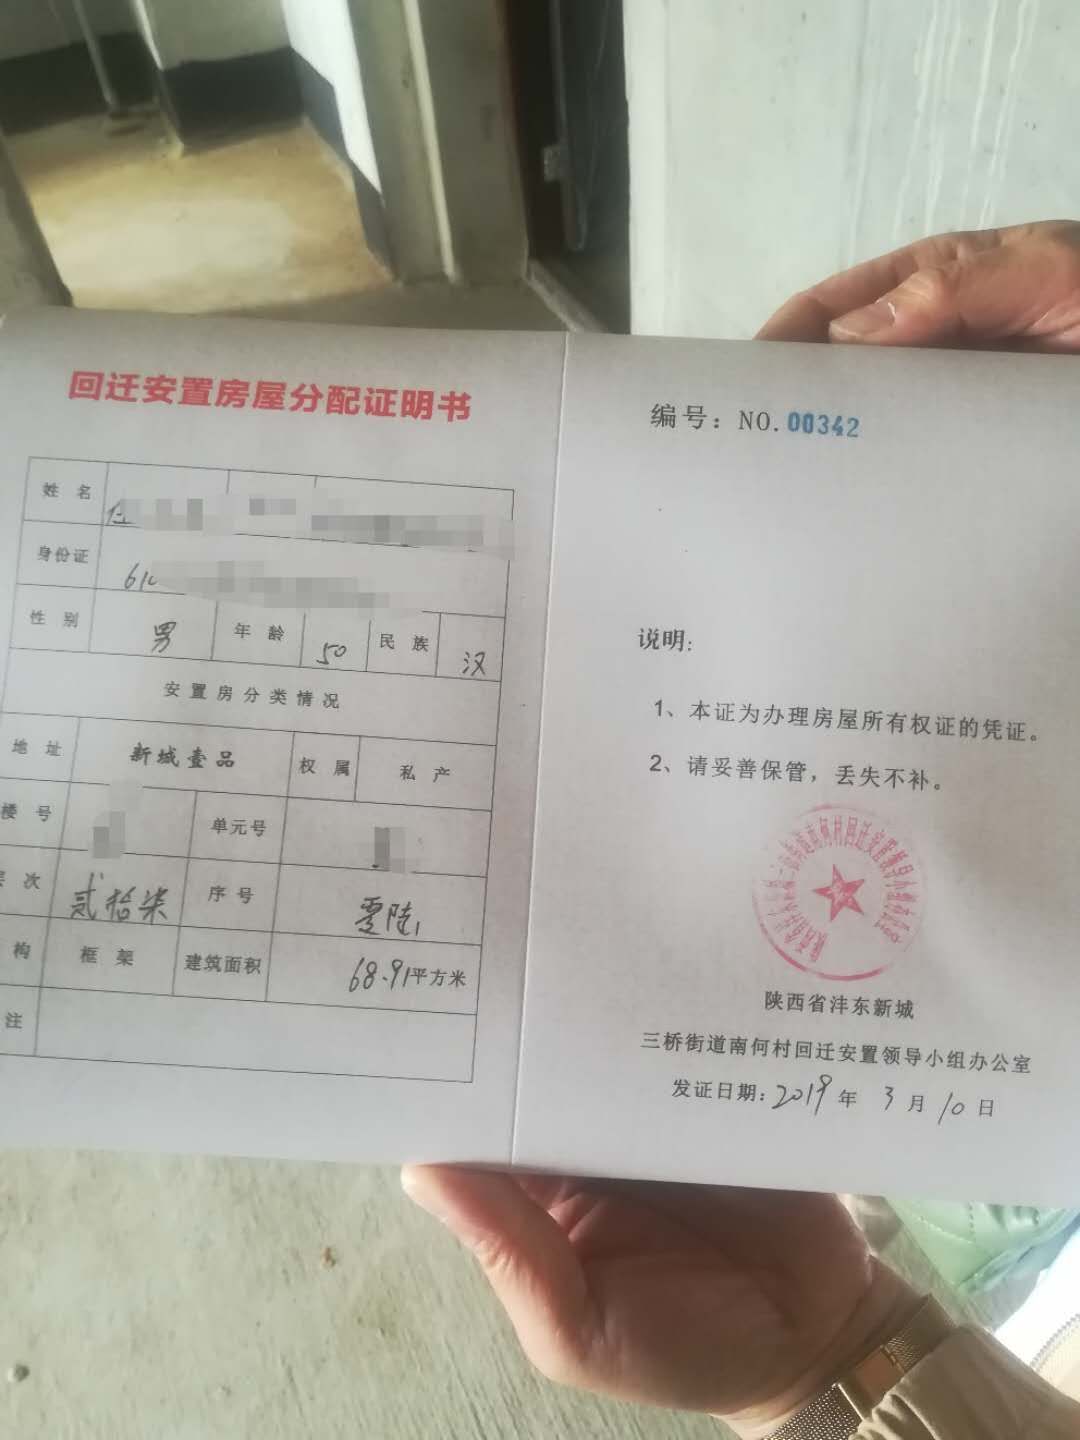 回迁安置房屋分配证明书
姓 名
身份证 610
性 别 男 年 龄 50 民 族 汉
安置房分类情况
地 址 新城壹品 权 属 私 产
楼 号 单元号
次 贰拾柒 序 号 零陆
构 框 架 建筑面积 68.91平方米
注
编号：NO.00342
说明:
1、本证为办理房屋所有权证的凭证。
2、请妥善保管，丢失不补。
陕西省沣东新城
三桥街道南何村回迁安置领导小组办公室
发证日期:2019年 3月10日